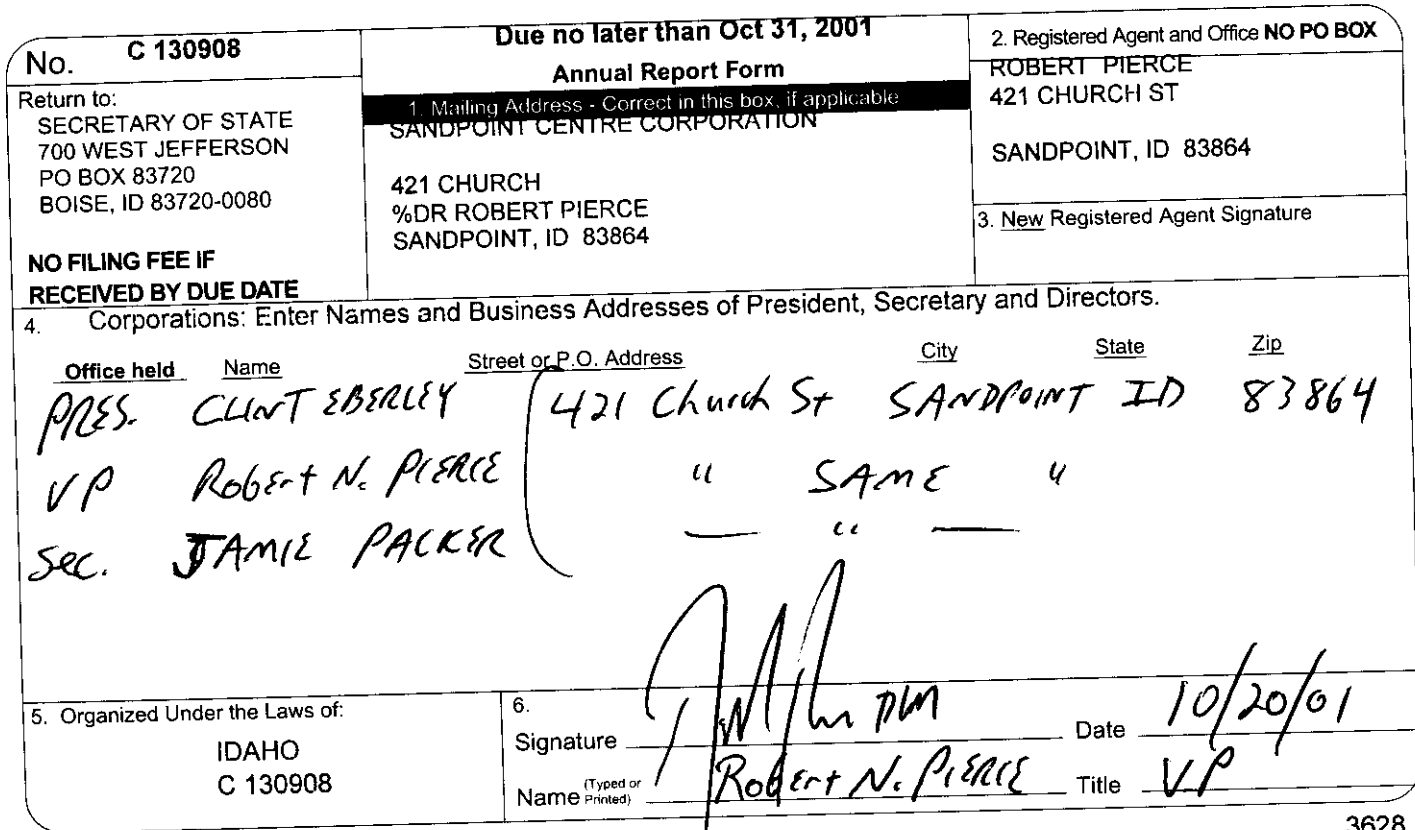 No. C 130908
Return to:
SECRETARY OF STATE
700 WEST JEFFERSON
PO BOX 83720
BOISE, ID 83720-0080
NO FILING FEE IF
RECEIVED BY DUE DATE
Due no later than Oct 31, 2001
Annual Report Form
1. Mailing Address - Correct in this box, if applicable
SANDPOINT CENTRE CORPORATION
421 CHURCH
%DR ROBERT PIERCE
SANDPOINT, ID 83864
2. Registered Agent and Office NO PO BOX
ROBERT PIERCE
421 CHURCH ST
SANDPOINT, ID 83864
3. New Registered Agent Signature
4. Corporations: Enter Names and Business Addresses of President, Secretary and Directors.
Office held Name Street or P.O. Address City State Zip
PRES. CLINT EBERLEY 421 Church St SANDPOINT ID 83864
VP Robert N. PIERCE " SAME "
Sec. JAMIE PACKER — " —
5. Organized Under the Laws of:
IDAHO
C 130908
6.
Signature Date 10/20/01
Name (Typed or Printed) Robert N. PIERCE Title VP
3628